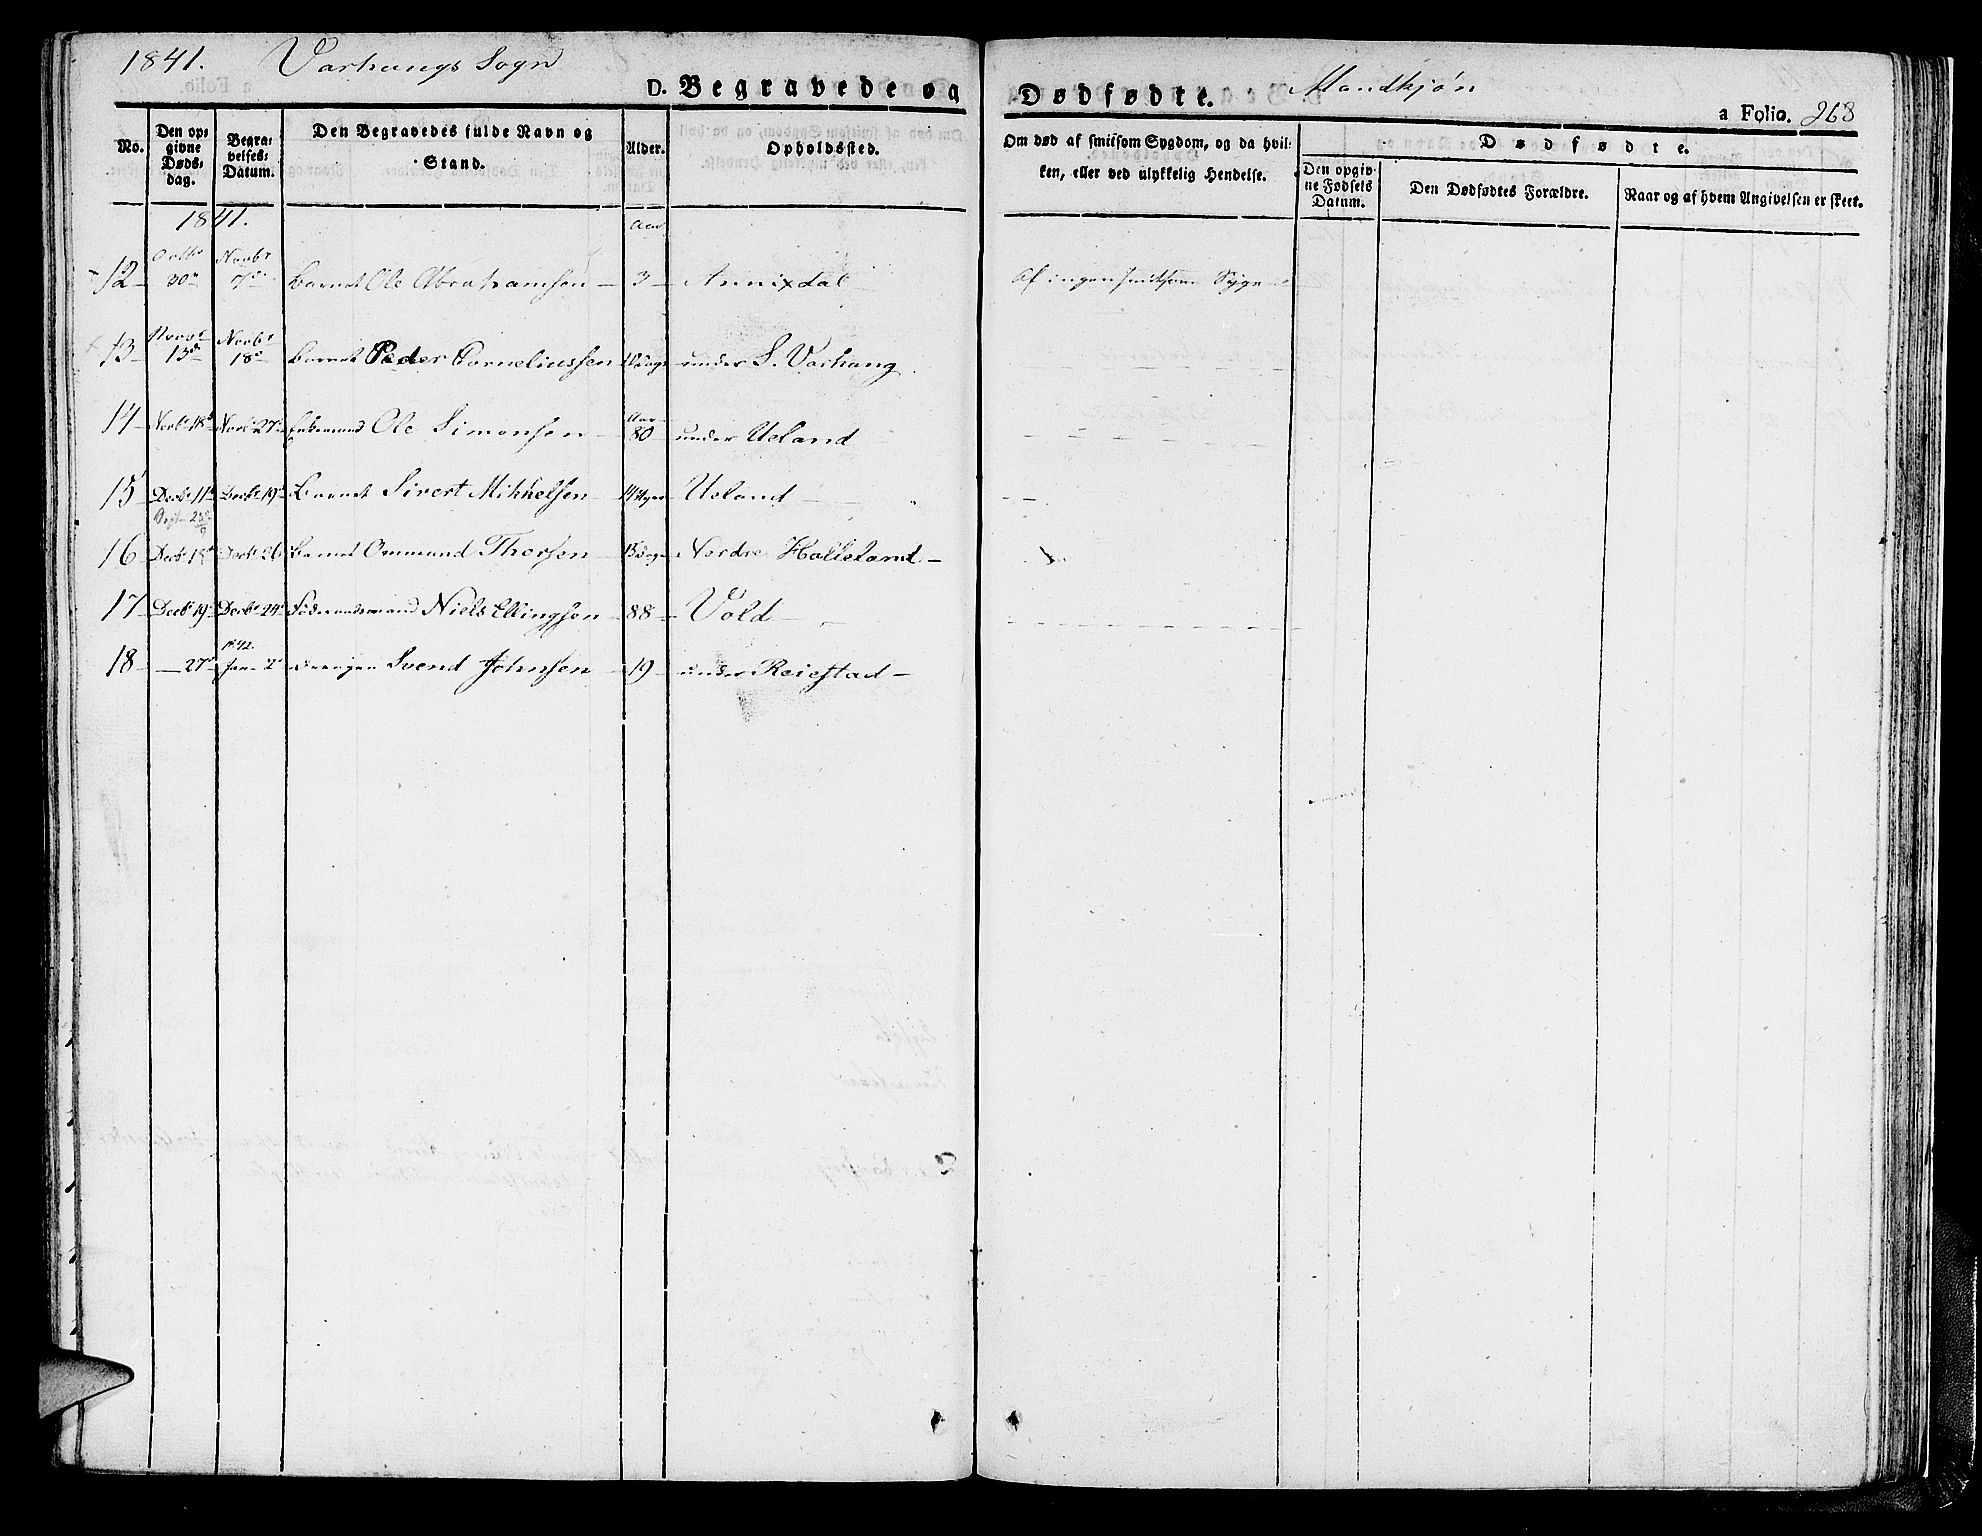 1841. Varhaugs Sogn
D. Begravede og Dødfødte. Mandkjøn
a Folio. 268
No. Den opgivne Dødsdag. Begravelses-Datum. Den Begravedes fulde Navn og Stand. Alder. Opholdssted. Om død af smitsom Sygdom, og da hvilken, eller ved ulykkelig Hendelse. Dødfødte.
Den opgivne Fødsels Datum. Den Dødfødtes Forældre. Naar og af hvem Angivelsen er skeet.
1841. Aar
12 Octbr 30 Novbr 7 Barnet Ole Abrahamsen 3 Annixdal Af ingen smitsom Syge
13 Novbr 13 Novbr 18 Barnet Peder Corneliussen under S. Varhaug
14 Novbr 18 Novbr 27 Ole Simonsen Aar 80 under Ueland
15 Decbr 11 Decbr 19 Barnet Sivert Mikkelsen 14 Uger Ueland
16 Decbr 18 Decbr 26 Barnet Ommund Thorsen Nordre Hølleland
17 Decbr 19 Decbr 24 Føderaadsmand Niels Ellingsen 88 Vold
18 27 1842. Jan 2 Drengen Svend Johnsen 19 under Reiestad